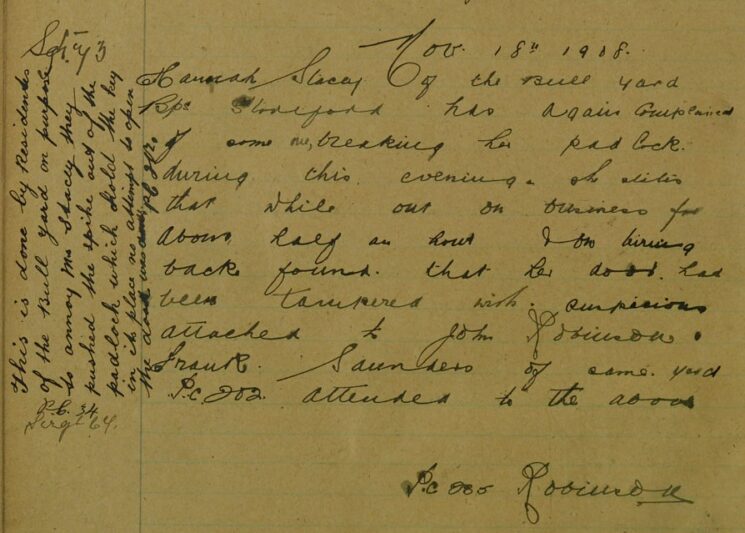 Nov. 18th 1908.
Hannah Stacey of the Bull yard
Bps Stortford has again Complained
of some one breaking her pad lock
during this evening. she states
that while out on business for
about half an hour & on
back found that her door had
been tampered with. suspicious
attached to John Robinson &
Frank Saunders of same yard
P.C. 202 attended to the above
P.c 285 Robinson
This is done by Residents
of the Bull Yard on purpose
to annoy Mrs Stacey they
pushed the spike out of the
padlock which hold the key
in its place no attempt to open
the door was
P.C. 34
Sergt 64.